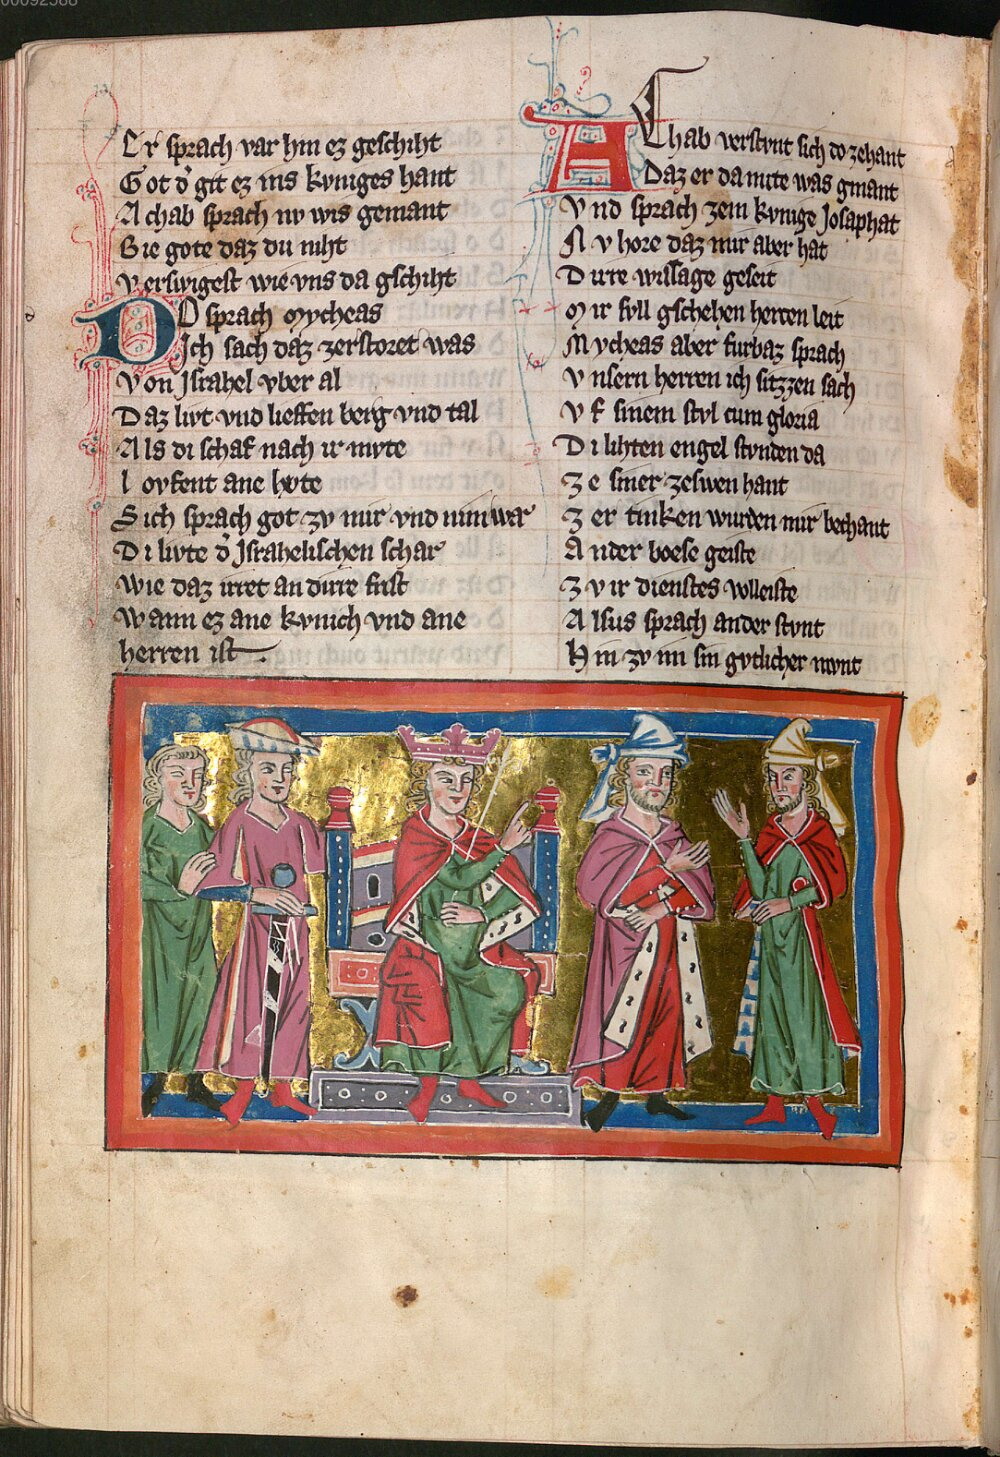 00092588
Er sprach var hin ez geschiht
Got d͛ git ez ins kyniges hant
Achab sprach nv wis gemant
Bie gote daz du niht
Verswigest wie vns da gschiht
DO sprach Mycheas
Ich sach daz zerstoret was
Von Israhel vber al
Daz livt vnd lieffen berg vnd tal
Als di schaf nach ir mvte
Lovfent ane hvte
Sich sprach got zv mir vnd nim war
Di livte d͛ Israhelischen schar
Wie daz irret an dirre frist
Wann ez ane kvnich vnd ane
herren ist
AChab verstvnt sich do zehant
Daz er da mite was gmant
Vnd sprach zem kvnige Josaphat
Nv hore daz mir aber hat
Dirre wissage geseit
Mir svll gschehen herren leit
Mycheas aber furbaz sprach
Vnsern herren ich sitzzen sach
Vf sinem stvl cum gloria
Di lihten engel stvnden da
Ze siner zeswen hant
Zer tinken wurden mir bechant
Ander boese geiste
Zv ir dienstes volleiste
Alsus sprach ander stvnt
Hin zv im sin gvtlicher mvnt